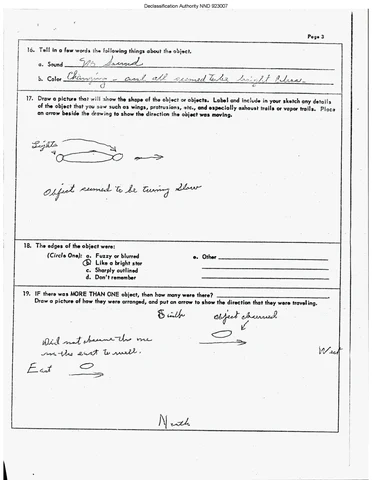 Declassification Authority NND 923007
Page 3
16. Tell in a few words the following things about the object.
a. Sound No Sound
b. Color Changing - and all seemed to be bright
17. Draw a picture that will show the shape of the object or objects. Label and include in your sketch any details
of the object that you saw such as wings, protrusions, etc., and especially exhaust trails or vapor trails. Place
an arrow beside the drawing to show the direction the object was moving.
Lights
Object seemed to be turning slow
18. The edges of the object were:
(Circle One): a. Fuzzy or blurred e. Other
b. Like a bright star
c. Sharply outlined
d. Don't remember
19. IF there was MORE THAN ONE object, then how many were there?
Draw a picture of how they were arranged, and put an arrow to show the direction that they were traveling.
South object observed
Did not observe the one
in the east to well.
West
East
North